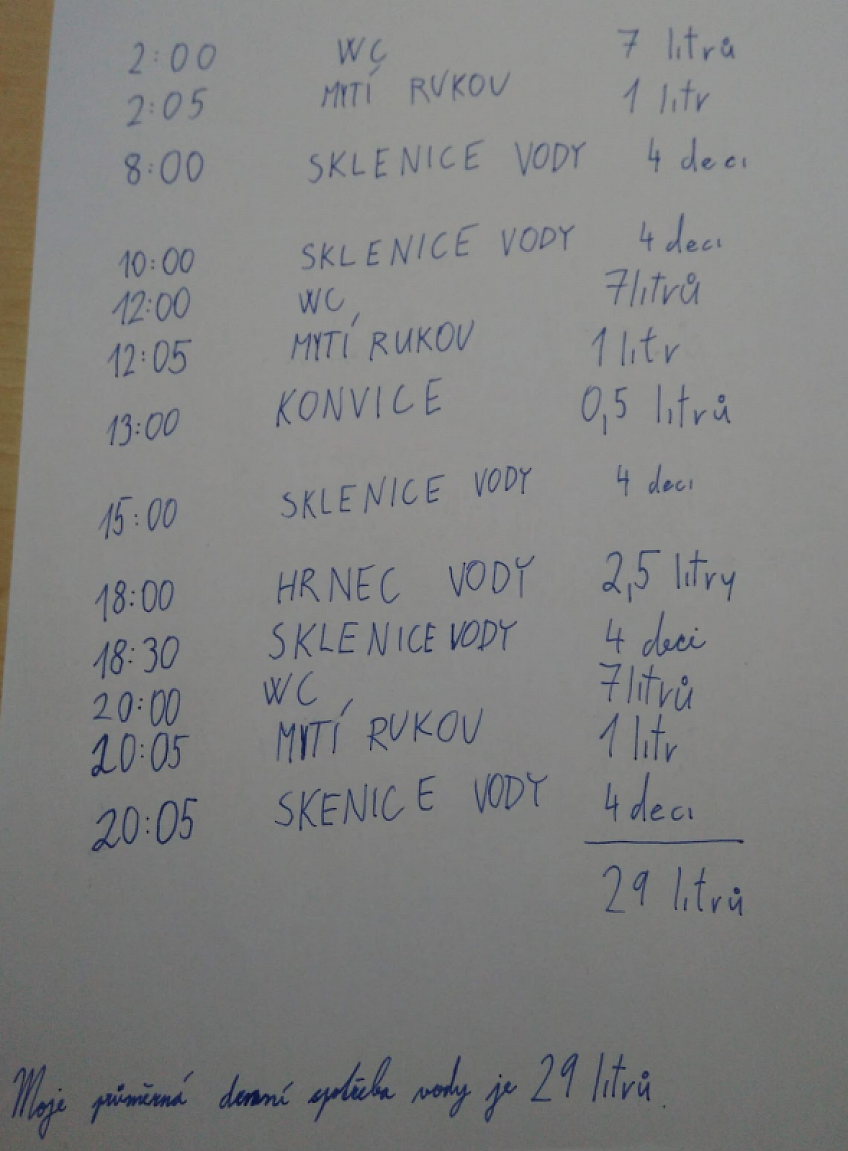 2:00 WC 7 litrů
2:05 MYTÍ RUKOU 1 litr
8:00 SKLENICE VODY 4 deci
10:00 SKLENICE VODY 4 deci
12:00 WC 7 litrů
12:05 MYTÍ RUKOU 1 litr
13:00 KONVICE 0,5 litrů
15:00 SKLENICE VODY 4 deci
18:00 HRNEC VODY 2,5 litry
18:30 SKLENICE VODY 4 deci
20:00 WC 7 litrů
20:05 MYTÍ RUKOU 1 litr
20:05 SKENICE VODY 4 deci
29 litrů
Moje průměrná denní spotřeba vody je 29 litrů.